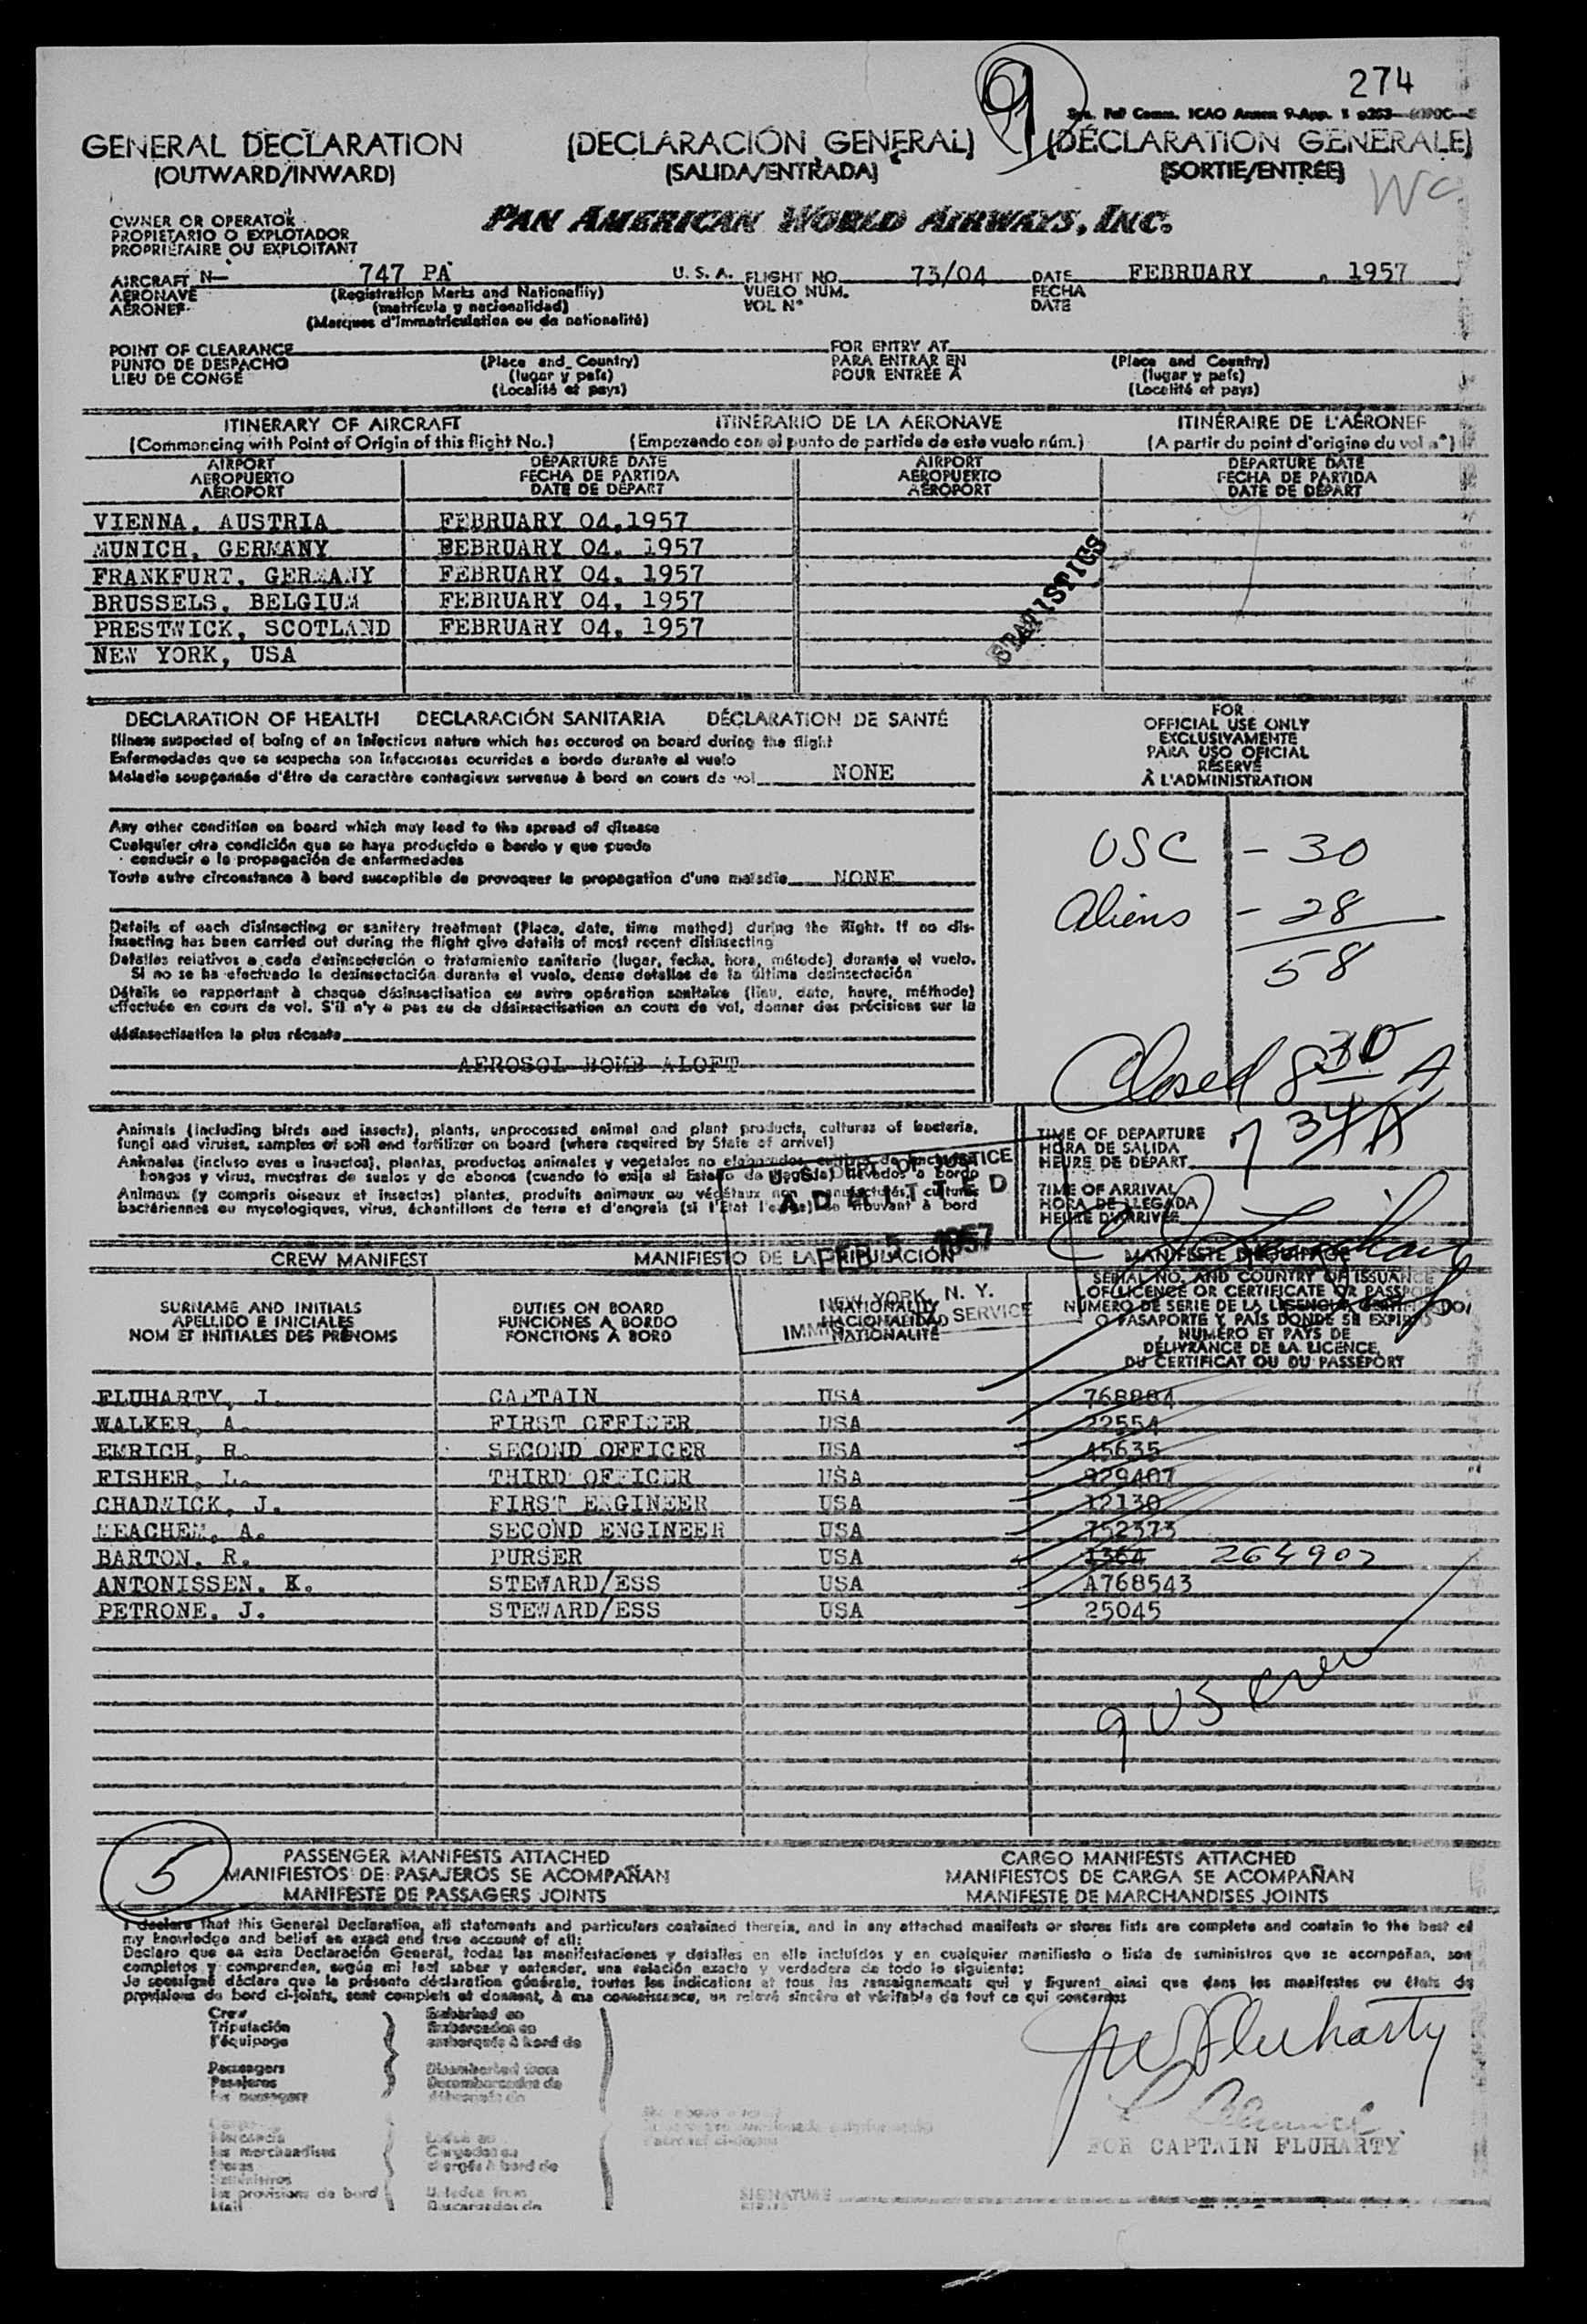 274
9
Sys. Pat Comm. ICAO Annex 9-App. 1
GENERAL DECLARATION (DECLARACIÓN GENERAL) (DÉCLARATION GENERALE)
(OUTWARD/INWARD) (SALIDA/ENTRADA) (SORTIE/ENTRÉE)
WC
OWNER OR OPERATOR
PROPIETARIO O EXPLOTADOR
PROPRIÉTAIRE OU EXPLOITANT
PAN AMERICAN WORLD AIRWAYS, INC.
AIRCRAFT N— 747 PA U. S. A. FLIGHT NO. 73/04 DATE FEBRUARY , 1957
AERONAVE (Registration Marks and Nationality) VUELO NÚM. FECHA
AÉRONEF (matrícula y nacionalidad) VOL N° DATE
(Marques d'immatriculation ou de nationalité)
POINT OF CLEARANCE FOR ENTRY AT
PUNTO DE DESPACHO (Place and Country) PARA ENTRAR EN (Place and Country)
LIEU DE CONGÉ (lugar y país) POUR ENTRÉE À (lugar y país)
(Localité et pays) (Localité et pays)
ITINERARY OF AIRCRAFT ITINERARIO DE LA AERONAVE ITINÉRAIRE DE L'AÉRONEF
(Commencing with Point of Origin of this flight No.) (Empezando con el punto de partida de este vuelo núm.) (A partir du point d'origine du vol n°)
AIRPORT DEPARTURE DATE AIRPORT DEPARTURE DATE
AEROPUERTO FECHA DE PARTIDA AEROPUERTO FECHA DE PARTIDA
AÉROPORT DATE DE DÉPART AÉROPORT DATE DE DÉPART
VIENNA, AUSTRIA FEBRUARY 04,1957
MUNICH, GERMANY BEBRUARY 04, 1957
FRANKFURT, GERMANY FEBRUARY 04, 1957
BRUSSELS, BELGIUM FEBRUARY 04, 1957
PRESTWICK, SCOTLAND FEBRUARY 04, 1957
NEW YORK, USA
STATISTICS
DECLARATION OF HEALTH DECLARACIÓN SANITARIA DÉCLARATION DE SANTÉ
Illness suspected of being of an infectious nature which has occured on board during the flight
Enfermedades que se sospecha son infecciosas ocurridas a bordo durante el vuelo
Maladie soupçonnée d'être de caractère contagieux survenue à bord en cours de vol NONE
Any other condition on board which may lead to the spread of disease
Cualquier otra condición que se haya producido a bordo y que pueda
conducir a la propagación de enfermedades
Toute autre circonstance à bord susceptible de provoquer la propagation d'une maladie NONE
Details of each disinsecting or sanitary treatment (Place, date, time method) during the flight. If no dis-
insecting has been carried out during the flight give details of most recent disinsecting
Detalles relativos a cada desinsectación o tratamiento sanitario (lugar, fecha, hora, método) durante el vuelo.
Si no se ha efectuado la desinsectación durante el vuelo, dense detalles de la última desinsectación
Détails se rapportant à chaque désinsectisation ou autre opération sanitaire (lieu, date, heure, méthode)
effectuée en cours de vol. S'il n'y a pas eu de désinsectisation en cours de vol, donner des précisions sur la
désinsectisation la plus récente
AEROSOL BOMB ALOFT
FOR
OFFICIAL USE ONLY
EXCLUSIVAMENTE
PARA USO OFICIAL
RÉSERVÉ
À L'ADMINISTRATION
USC - 30
Aliens - 28
58
Closed 8 30 A
Animals (including birds and insects), plants, unprocessed animal and plant products, cultures of bacteria,
fungi and viruses, samples of soil and fertilizer on board (where required by State of arrival)
Animales (incluso aves e insectos), plantas, productos animales y vegetales no elaborados, cultivo de bacterias,
hongos y virus, muestras de suelos y de abonos (cuando lo exija el Estado de llegada) llevados a bordo
Animaux (y compris oiseaux et insectes) plantes, produits animaux ou végétaux non manufacturés, cultures
bactériennes ou mycologiques, virus, échantillons de terre et d'engrais (si l'État l'exige) se trouvant à bord
TIME OF DEPARTURE 7 34 A
HORA DE SALIDA
HEURE DE DÉPART
TIME OF ARRIVAL
HORA DE LLEGADA
HEURE D'ARRIVÉE
U. S. DEPT. OF JUSTICE
ADMITTED
FEB 5 1957
NEW YORK, N. Y.
IMMIG. SERVICE
CREW MANIFEST MANIFIESTO DE LA TRIPULACIÓN MANIFESTE D'ÉQUIPAGE
SURNAME AND INITIALS DUTIES ON BOARD NATIONALITY
APELLIDO E INICIALES FUNCIONES A BORDO NACIONALIDAD
NOM ET INITIALES DES PRÉNOMS FONCTIONS À BORD NATIONALITÉ
SERIAL NO. AND COUNTRY OF ISSUANCE
OF LICENCE OR CERTIFICATE OR PASSPORT
NÚMERO DE SERIE DE LA LICENCIA, CERTIFICADO
O PASAPORTE Y PAÍS DONDE SE EXPIDIÓ
NUMÉRO ET PAYS DE
DÉLIVRANCE DE LA LICENCE,
DU CERTIFICAT OU DU PASSEPORT
FLUHARTY, J. CAPTAIN USA 768884
WALKER, A. FIRST OFFICER USA 22554
EMRICH, R. SECOND OFFICER USA 45635
FISHER, L. THIRD OFFICER USA 929407
CHADWICK, J. FIRST ENGINEER USA 12130
MEACHEM, A. SECOND ENGINEER USA 752373
BARTON, R. PURSER USA 1364 264902
ANTONISSEN, K. STEWARD/ESS USA A768543
PETRONE, J. STEWARD/ESS USA 25045
9 US crew
5
PASSENGER MANIFESTS ATTACHED CARGO MANIFESTS ATTACHED
MANIFIESTOS DE PASAJEROS SE ACOMPAÑAN MANIFIESTOS DE CARGA SE ACOMPAÑAN
MANIFESTE DE PASSAGERS JOINTS MANIFESTE DE MARCHANDISES JOINTS
I declare that this General Declaration, all statements and particulars contained therein, and in any attached manifests or stores lists are complete and contain to the best of
my knowledge and belief an exact and true account of all:
Declaro que en esta Declaración General, todas las manifestaciones y detalles en ella incluídos y en cualquier manifiesto o lista de suministros que se acompañan, son
completos y comprenden, según mi leal saber y entender, una relación exacta y verdadera de todo lo siguiente:
Je soussigné déclare que la présente déclaration générale, toutes les indications et tous les renseignements qui y figurent ainsi que dans les manifestes ou états de
provisions de bord ci-joints, sont complets et donnent, à ma connaissance, un relevé sincère et véritable de tout ce qui concerne:
Crew Embarked on
Tripulación Embarcados en
l'équipage embarqués à bord de
Passengers Disembarked from
Pasajeros Desembarcados de
les passagers
les marchandises chargés à bord de
Stores
Suministros
les provisions de bord Unladen from
Mail Descargados de
J W Fluharty
FOR CAPTAIN FLUHARTY
SIGNATURE